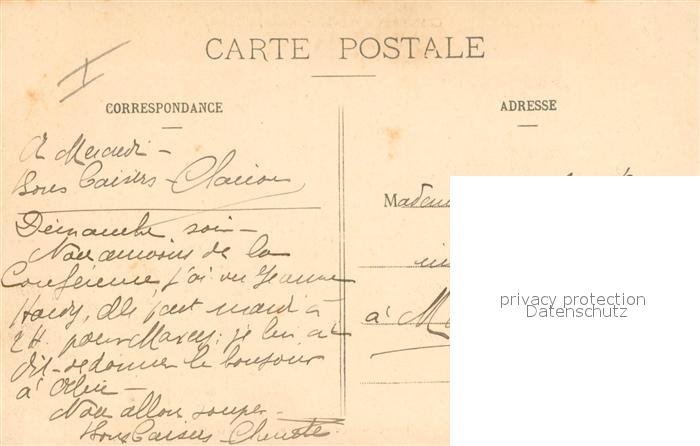 CARTE POSTALE
CORRESPONDANCE
ADRESSE
A Mercredi -
Bons Baisers - 
Dimanche soir -
Nous de la
Conférence, j'ai vu Jeanne
Hardy, elle part mardi à
2 H. pour ; je lui ai
dit de donner le bonjour
à
Nous allons souper -
Bons Baisers
Madam
à
privacy protection
Datenschutz